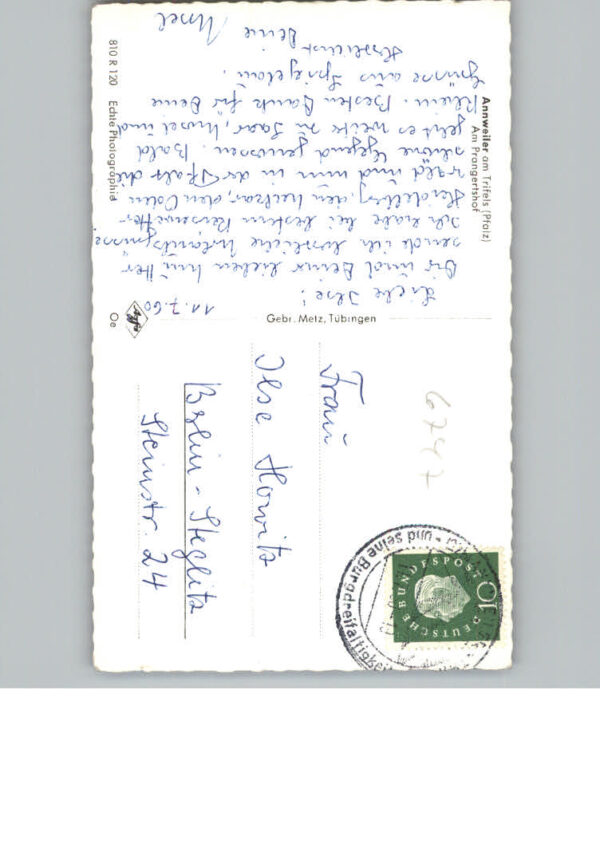 Annweiler am Trifels (Pfalz)
Am Prangertshof
810 R 120 Echte Photographie
Gebr. Metz, Tübingen
Agfa
Oe
11.7.60
Liebe Ilse!
Dir und Deiner lieben Mutter
sende ich herzliche Urlaubsgrüsse
Ich habe bei bestem Reisewetter
Heidelberg, den Neckar, den Oden
wald und nun in der Pfalz die
schöne Gegend genossen. Bald
geht es weiter zu Saar, Mosel und
Rhein. Besten Dank für Deine
Grüsse aus Spiegelau.
Herzlichst
Deine Ursel
6747
Frau
Ilse Howitz
Berlin-Steglitz
Steinstr. 24
und seine Burgdreifaltigkeit
10
DEUTSCHE BUNDESPOST